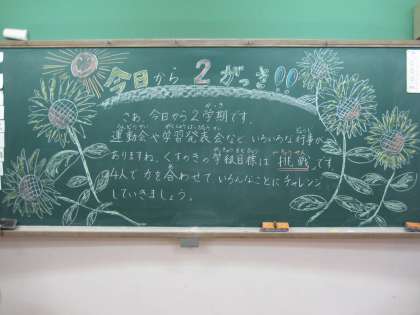 今日から2がっき!!
さぁ、今日から2学期です。
運動会や学習発表会など いろいろな行事が
ありますね。くすのきの学級目標は「挑戦」です
4人で力を合わせて いろんなことにチャレンジ
していきましょう。